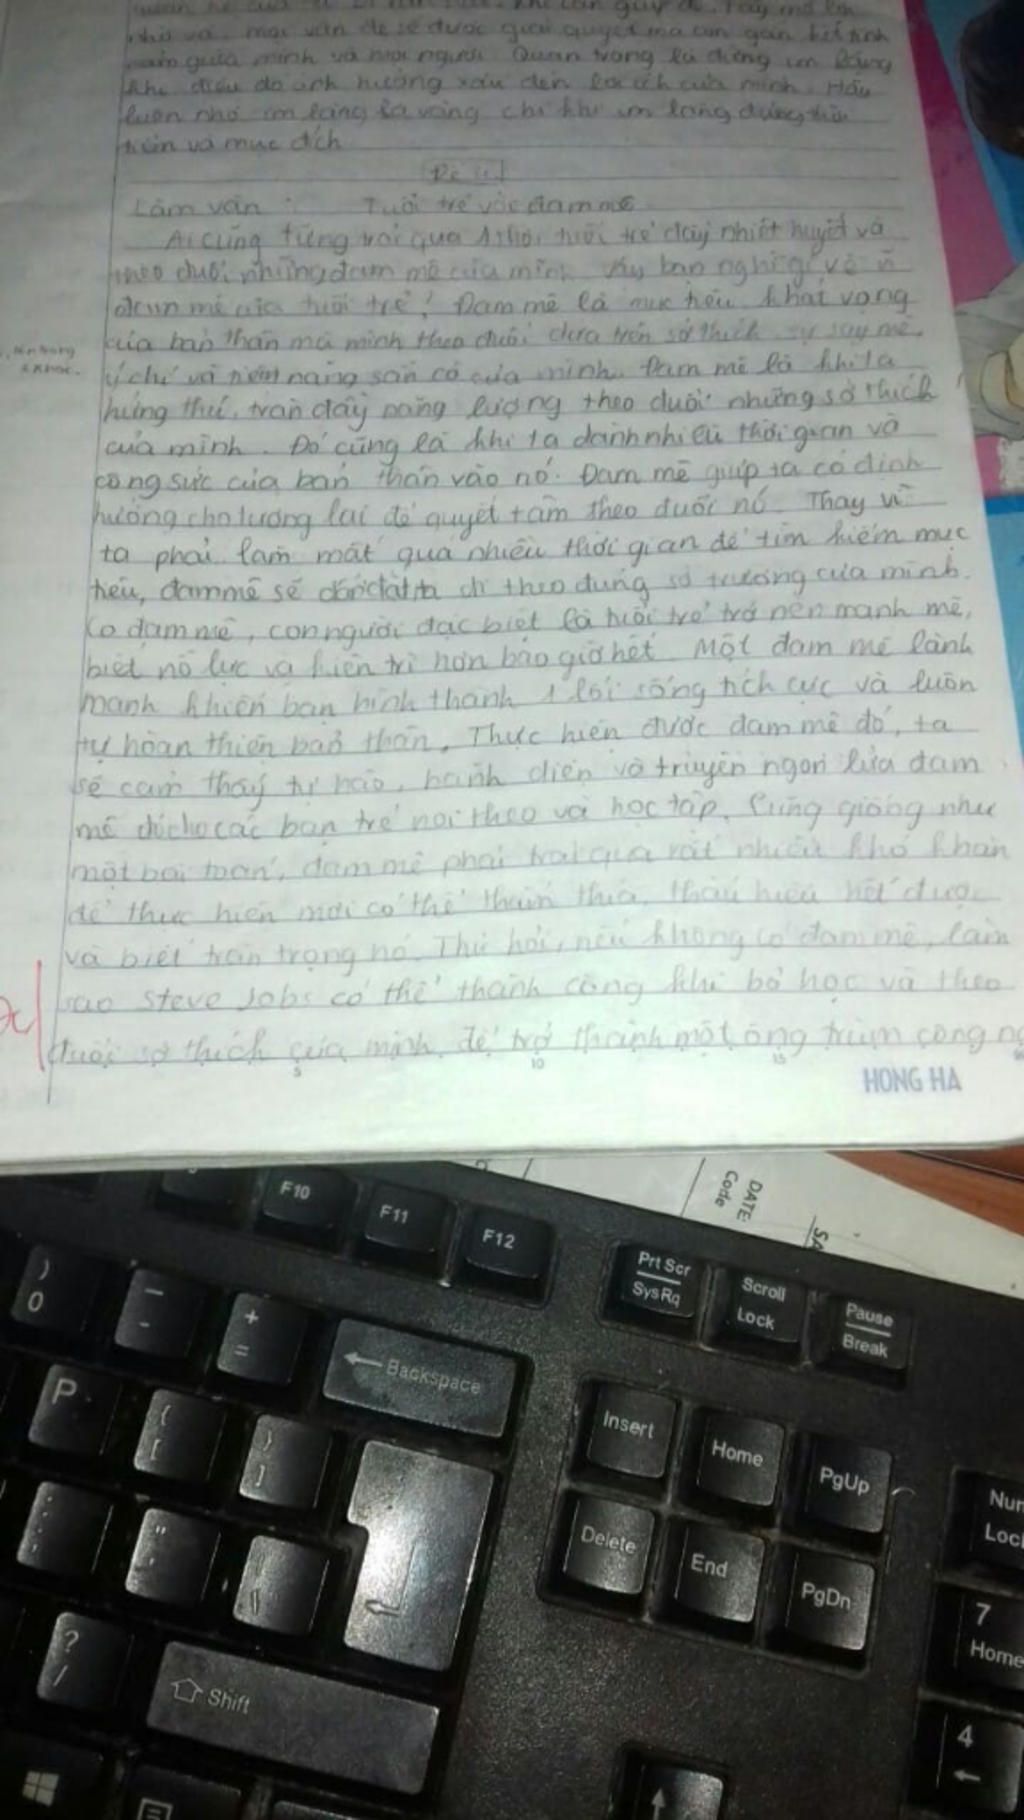 nhỏ và mọi vấn đề sẽ được giải quyết mà còn gắn kết tình
cảm giữa mình và mọi người. Quan trọng là đừng im lặng
khi điều đó ảnh hưởng xấu đến lợi ích của mình. Hãy
luôn nhớ im lặng là vàng chỉ khi im lặng đúng thời
điểm và mục đích
Làm văn : Tuổi trẻ với đam mê
Ai cũng từng trải qua 1 thời tuổi trẻ đầy nhiệt huyết và
theo đuổi những đam mê của mình. Vậy bạn nghĩ gì về
đam mê của tuổi trẻ? Đam mê là mục tiêu khát vọng
của bản thân mà mình theo đuổi dựa trên sở thích, sự say mê,
ý chí và tiềm năng sẵn có của mình. Đam mê là khi ta
hứng thú, tràn đầy năng lượng theo đuổi những sở thích
của mình. Đó cũng là khi ta dành nhiều thời gian và
công sức của bản thân vào nó. Đam mê giúp ta có định
hướng cho tương lai để quyết tâm theo đuổi nó. Thay vì
ta phải làm mất quá nhiều thời gian để tìm kiếm mục
tiêu, đam mê sẽ dẫn dắt ta đi theo đúng sở trường của mình.
Có đam mê, con người đặc biệt là tuổi trẻ trở nên mạnh mẽ,
biết nỗ lực và kiên trì hơn bao giờ hết. Một đam mê lành
mạnh khiến bạn hình thành 1 lối sống tích cực và luôn
tự hoàn thiện bản thân. Thực hiện được đam mê đó, ta
sẽ cảm thấy tự hào, hãnh diện và truyền ngọn lửa đam
mê cho các bạn trẻ noi theo và học tập. Cũng giống như
một bài toán, đam mê phải trải qua rất nhiều khó khăn
để thực hiện mới có thể thấm thía, thấu hiểu hết được
và biết trân trọng nó. Thử hỏi, nếu không có đam mê, làm
sao Steve Jobs có thể thành công khi bỏ học và theo
đuổi sở thích của mình để trở thành một ông trùm công
5 10 15
HONG HA
DATE:
Code
F10 F11 F12
Prt Scr
SysRq
Scroll
Lock
Pause
Break
) 0
_ -
+ =
← Backspace
Insert Home PgUp
P { [ } ]
Delete End PgDn
: ;
" '
7
Home
? /
Shift
4
←